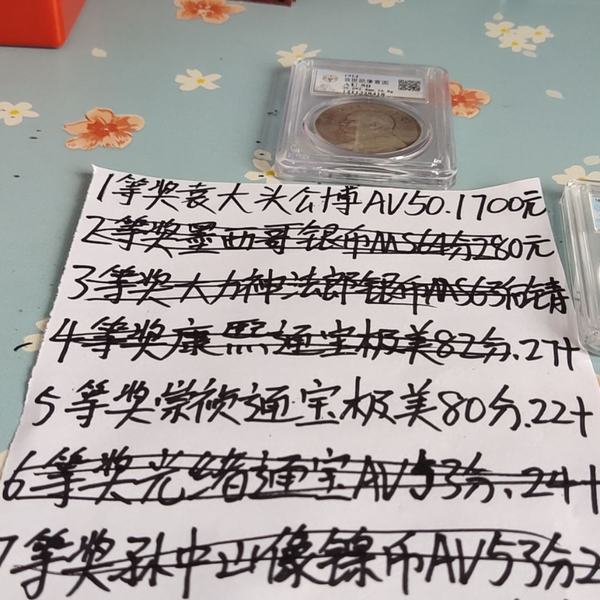 1912
AU 50
1等奖袁大头公博AV50.1700元
2等奖墨西哥银币MS64分280元
3等奖大力神法郎银币MS63分
4等奖康熙通宝极美82分.27十
5等奖崇祯通宝极美80分.22十
6等奖光绪通宝AV53分.24十
7等奖孙中山像镍币AV53分2